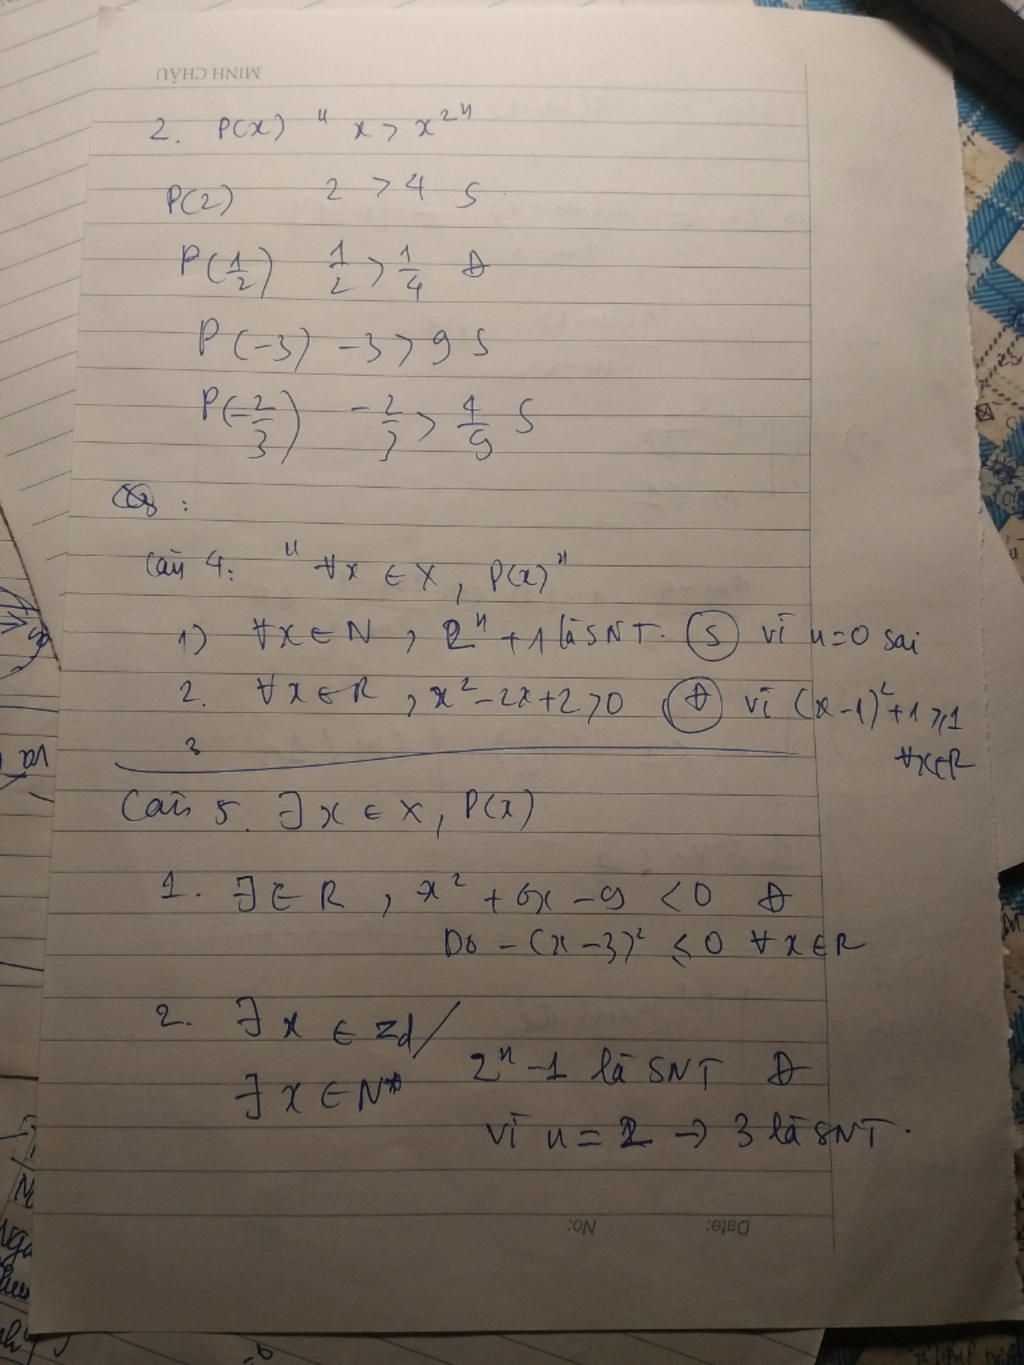 MINH CHÂU
2. P(x) " x > x²"
P(2) 2 > 4 S
P(1/2) 1/2 > 1/4 Đ
P(-3) -3 > 9 S
P(-2/3) -2/3 > 4/9 S
Câu 4: "∀x ∈ X, P(x)"
1) ∀x ∈ N, 2ⁿ + 1 là SNT. S vì n = 0 sai
2. ∀x ∈ R, x² - 2x + 2 > 0 Đ vì (x - 1)² + 1 ≥ 1
3 ∀x∈R
Câu 5. ∃x ∈ X, P(x)
1. ∃ ∈ R, x² + 6x - 9 < 0 Đ
Do - (x - 3)² ≤ 0 ∀x∈R
2. ∃x ∈
2ⁿ - 1 là SNT Đ
∃x ∈ N*
vì n = 2 → 3 là SNT.
Date: No: